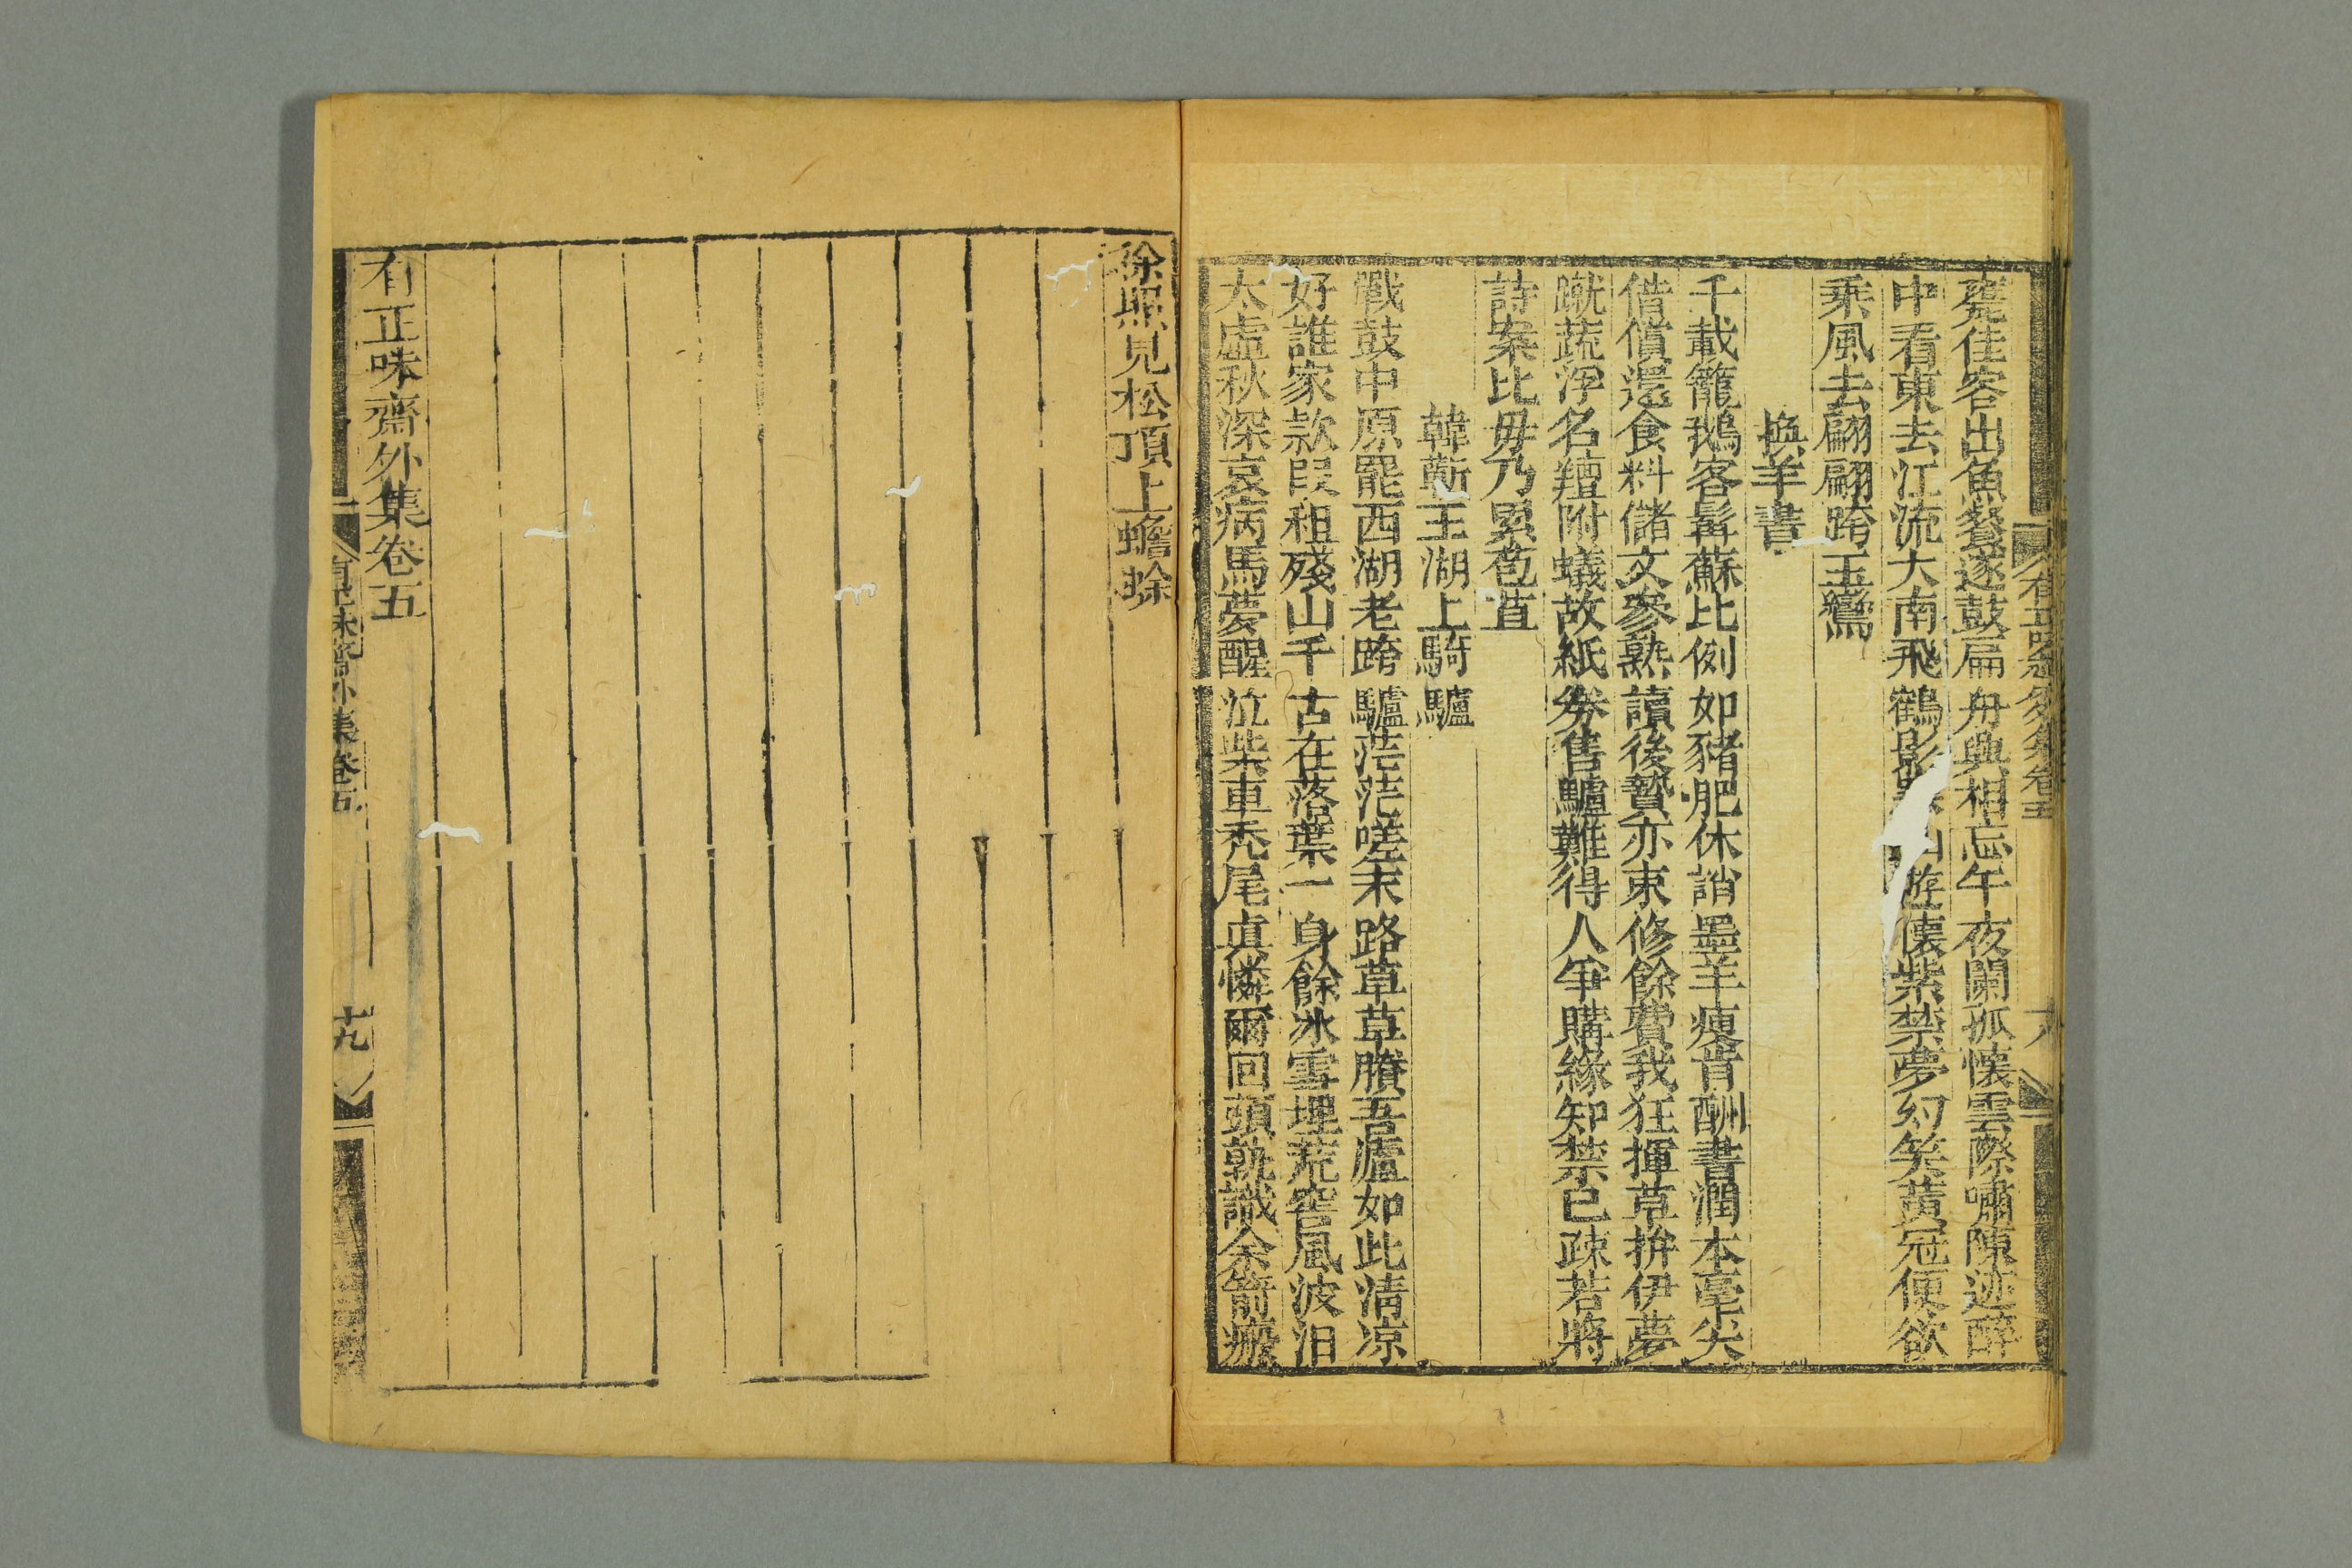 有正味齋外集卷五
十八
佳客出魚餐遂鼓扁舟興相忘午夜闌孤懷雲際嘯陳迹醉
中看東去江流大南飛鶴影遊懷紫禁夢幻笑黃冠便欲
乘風去翩翩跨玉鸞
換羊書
千載籠鵝客髯蘇比例如豬肥休誚墨羊瘦肯酬書潤本毫尖
借償還食料儲文參熟讀後贄亦束修餘費我狂揮草拚伊夢
蹴蔬浮名羶附蟻故紙劵售驢難得人爭購緣知禁已疎若將
詩案比毋乃累苞苴
韓蘄王湖上騎驢
戰鼓中原罷西湖老跨驢茫茫嗟末路草草賸吾廬如此清凉
好誰家款段租殘山千古在落葉一身餘冰雪埋荒窖風波汨
太虛秋深哀病馬夢醒泣柴車禿尾眞憐爾回頭孰識余箭瘢
徐照見松頂上蟾蜍
有正味齋外集卷五
有正味齋外集卷五
十九